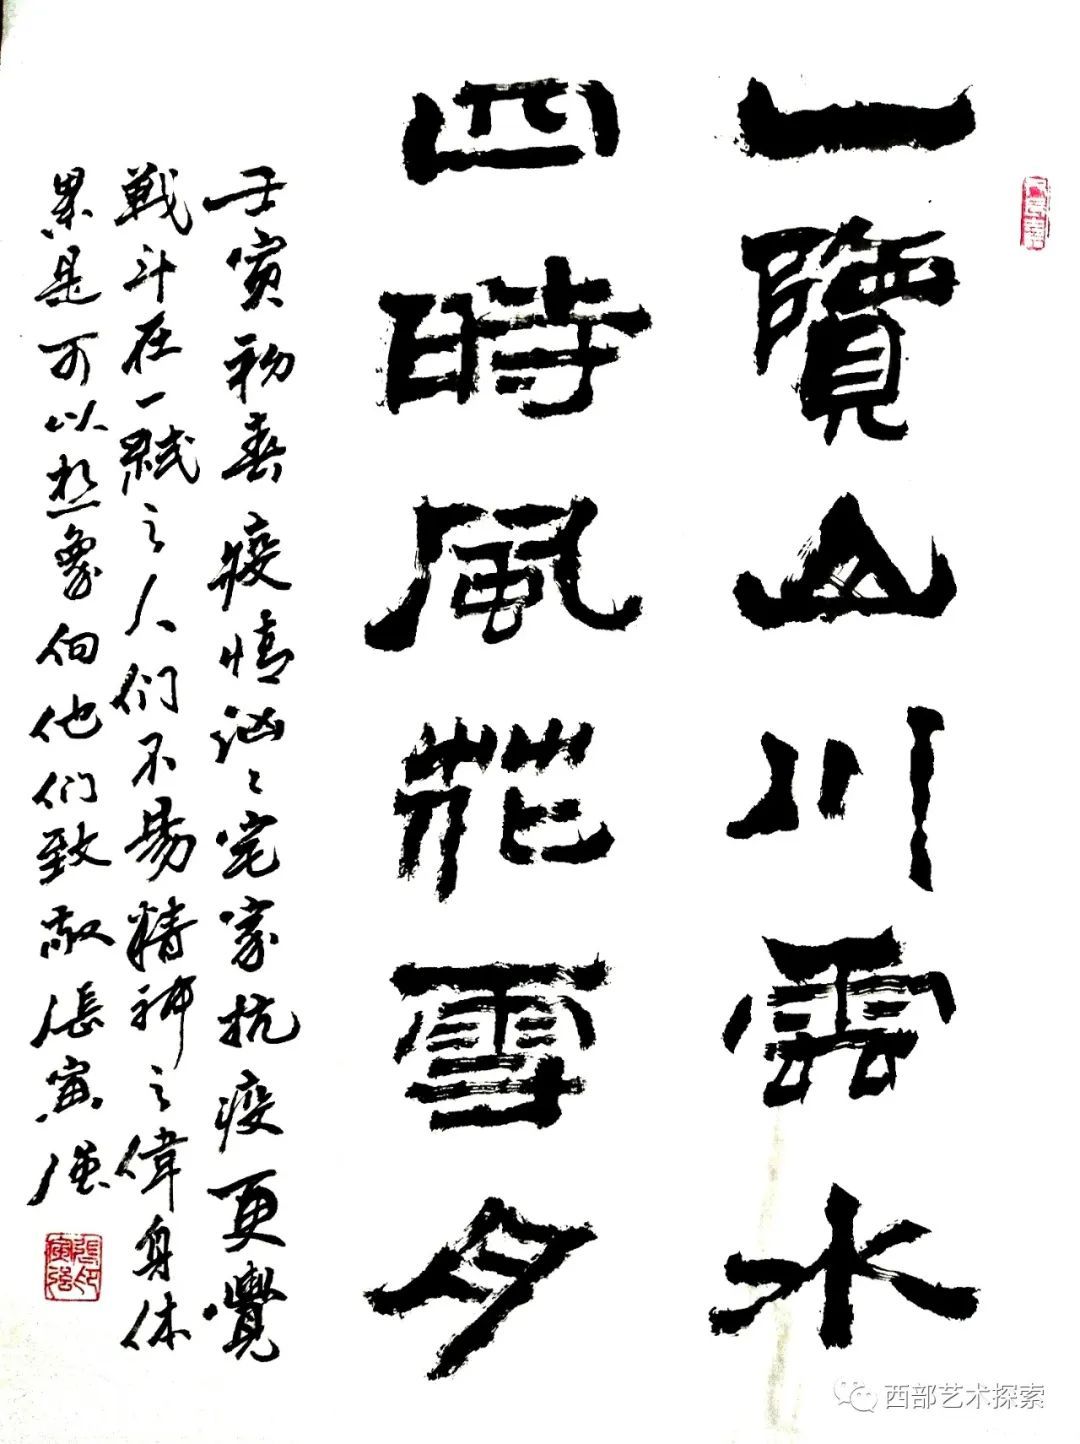 一覽山川雲水
四時風花雪夕
壬寅初春疫情汹々宅家抗疫更覺
戰斗在一线之人们不易精神之偉身体
累是可以想象向他们致敬張寅强
張寅强印
西部艺术探索